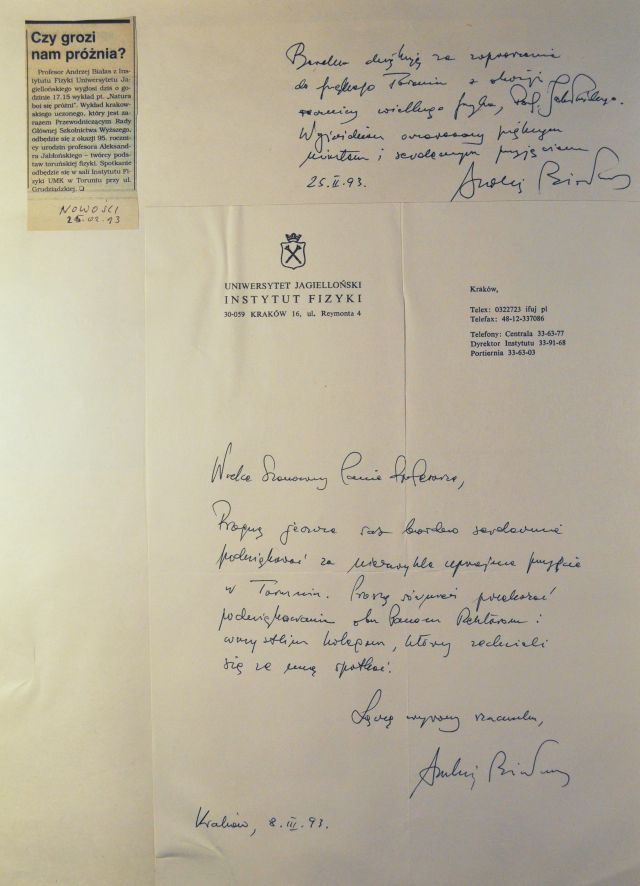 Czy grozi
nam próżnia?
Profesor Andrzej Białas z Ins-
tytutu Fizyki Uniwersytetu Ja-
giellońskiego wygłosi dziś o go-
dzinie 17.15 wykład pt. „Natura
boi się próżni”. Wykład krakow-
skiego uczonego, który jest za-
razem Przewodniczącym Rady
Głównej Szkolnictwa Wyższego,
odbędzie się z okazji 95. roczni-
cy urodzin profesora Aleksan-
dra Jabłońskiego – twórcy pods-
taw toruńskiej fizyki. Spotkanie
odbędzie się w sali Instytutu Fi-
zyki UMK w Toruniu przy ul.
Grudziądzkiej.
NOWOŚCI
25.02.93
Bardzo dziękuję za zaproszenie
do pięknego Torunia z okazji
rocznicy wielkiego fizyka, Prof. Jabłońskiego.
Wyjeżdżam oczarowany pięknym
miastem i serdecznym przyjęciem
25.II.93. Andrzej Białas
UNIWERSYTET JAGIELLOŃSKI
INSTYTUT FIZYKI
30-059 KRAKÓW 16, ul. Reymonta 4
Kraków,
Telex: 0322723 ifuj pl
Telefax: 48-12-337086
Telefony: Centrala 33-63-77
Dyrektor Instytutu 33-91-68
Portiernia 33-63-03
Wielce Szanowny Panie Profesorze,
Pragnę jeszcze raz bardzo serdecznie
podziękować za niezwykle uprzejme przyjęcie
w Toruniu. Proszę również przekazać
podziękowania obu Panom Rektorom i
wszystkim kolegom, którzy zechcieli
się ze mną spotkać.
Łączę wyrazy szacunku,
Andrzej Białas
Kraków, 8.III.93.